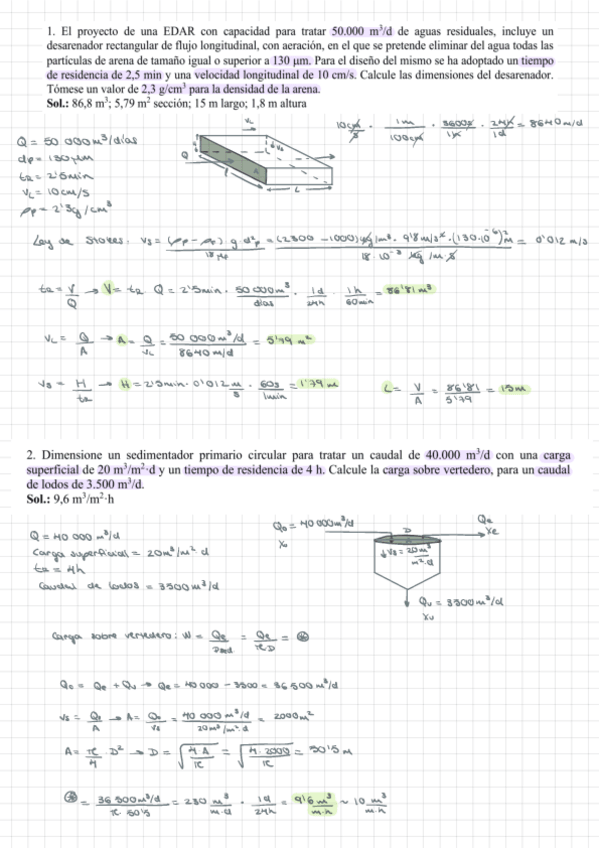 1. El proyecto de una EDAR con capacidad para tratar 50.000 m³/d de aguas residuales, incluye un
desarenador rectangular de flujo longitudinal, con aeración, en el que se pretende eliminar del agua todas las
partículas de arena de tamaño igual o superior a 130 μm. Para el diseño del mismo se ha adoptado un tiempo
de residencia de 2,5 min y una velocidad longitudinal de 10 cm/s. Calcule las dimensiones del desarenador.
Tómese un valor de 2,3 g/cm³ para la densidad de la arena.
Sol.: 86,8 m³; 5,79 m² sección; 15 m largo; 1,8 m altura
10cm/s · 1m/100cm · 3600s/1h · 24h/1d = 8640 m/d
Q = 50 000 m³/días
dp = 130 μm
tR = 2'5min
vL = 10 cm/s
ρp = 2'3g/cm³
vL
vs
Q
L
Ley de Stokes: vs = (ρp - ρe) g · d²p / 18 μe = (2300 - 1000) kg/m³ · 9'8 m/s² · (130·10⁻⁶)² m / 18 · 10⁻³ kg/m·s = 0'012 m/s
tR = V/Q → V = tR · Q = 2'5min · 50 000 m³/días · 1d/24h · 1h/60min = 86'81 m³
vL = Q/A → A = Q/vL = 50 000 m³/d / 8640 m/d = 5'79 m²
vs = H/tR → H = 2'5min · 0'012 m/s · 60s/1min = 1'79 m
L = V/A = 86'81/5'79 = 15m
2. Dimensione un sedimentador primario circular para tratar un caudal de 40.000 m³/d con una carga
superficial de 20 m³/m²·d y un tiempo de residencia de 4 h. Calcule la carga sobre vertedero, para un caudal
de lodos de 3.500 m³/d.
Sol.: 9,6 m³/m²·h
Q = 40 000 m³/d
Carga superficial = 20m³/m²·d
tR = 4h
Caudal de lodos = 3500 m³/d
Qo = 40 000 m³/d
Xo
D
Qe
Xe
vs = 20 m³/m²·d
Qu = 3500 m³/d
Xu
Carga sobre vertedero: W = Qe/Pmd = Qe/π·D = ⊛
Qo = Qe + Qu → Qe = 40 000 - 3500 = 36 500 m³/d
vs = Qo/A → A = Qo/vs = 40 000 m³/d / 20 m³/m²·d = 2000 m²
A = π/4 · D² → D = √(4·A/π) = √(4·2000/π) = 50'5 m
⊛ = 36 500 m³/d / π · 50'5 = 230 m³/m·d · 1d/24h = 9'6 m³/m·h ~ 10 m³/m·h